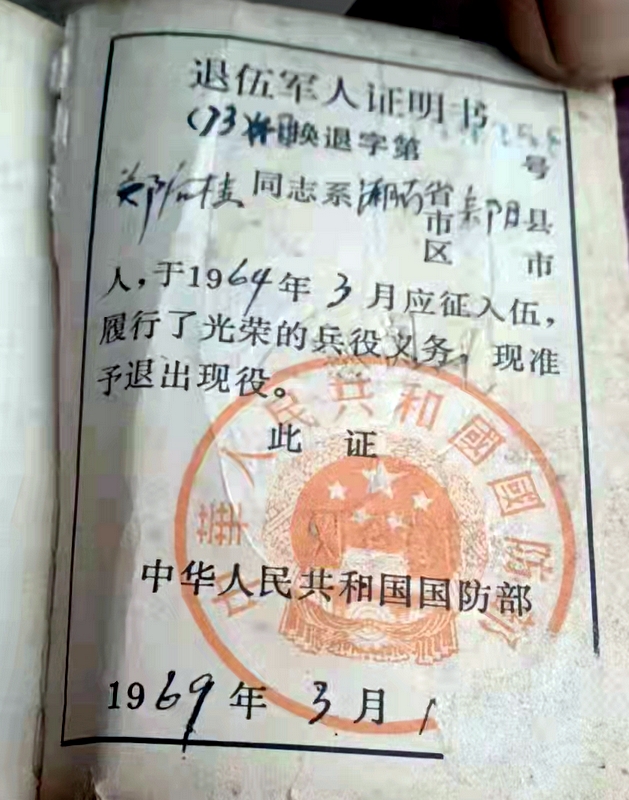 退伍军人证明书
(73) 换退字第 号
郑 桂 同志系湖南省 耒阳县
市 市
区
人，于1964年3月应征入伍，
履行了光荣的兵役义务，现准
予退出现役。
此 证
中华人民共和国国防部
中華人民共和國國防部
1969年3月1